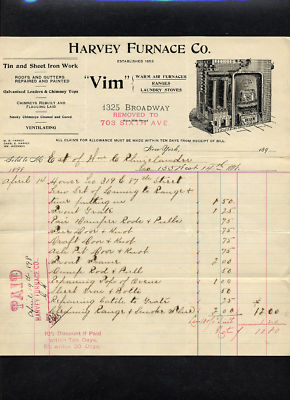 HARVEY FURNACE CO.
ESTABLISHED 1853
Tin and Sheet Iron Work
ROOFS AND GUTTERS
REPAIRED AND PAINTED
Galvanized Leaders & Chimney Tops
CHIMNEYS REBUILT AND
FLUEING LAID
Smoky Chimneys Cleaned and Cured
VENTILATING
"Vim"
WARM AIR FURNACES
RANGES
LAUNDRY STOVES
1325 BROADWAY
REMOVED TO
703 SIXTH AVE
ALL CLAIMS FOR ALLOWANCE MUST BE MADE WITHIN TEN DAYS FROM RECEIPT OF BILL.
New-York, 189
Sold to Est of Wm C
No 135 West 14th
1891
April 14 House No 319 E 17th Street
New Set of Range &
time putting in 1 50
Front Grate 75
Pair Damper Rods & Pulls 75
Door 75
Draft Door 75
Ash Pit Door 75
Front Frame 2 00
Damp Rod & Pull 50
Repairing Top of Oven 1 00
& Bolts 50
Repairing to Grate 75
Repairing Range & Smoke Pipe 2 00 12 00
PAID
HARVEY FURNACE CO.
10% Discount if Paid
within Ten Days,
5% within 30 Days.